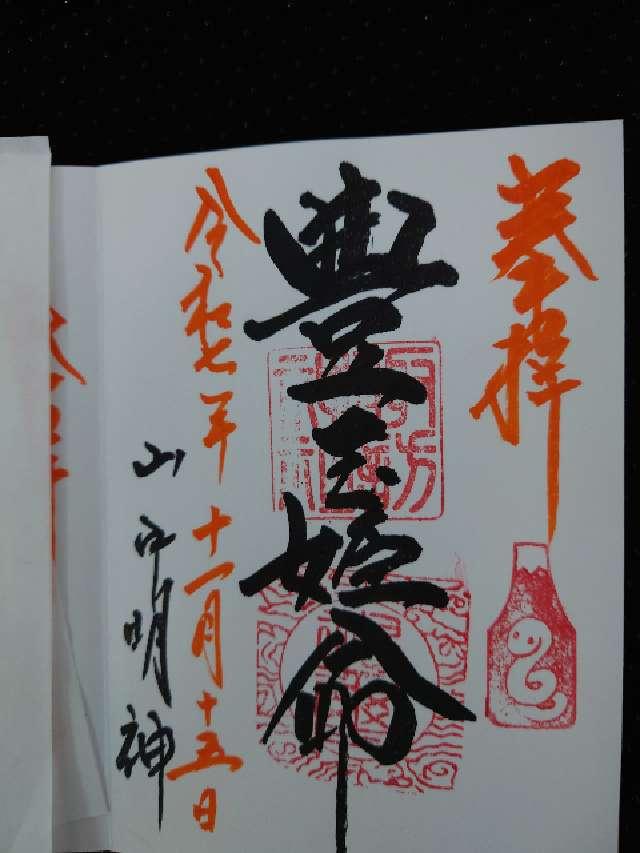 奉拝
豊玉姫命
令和七年十一月十五日
山中明神